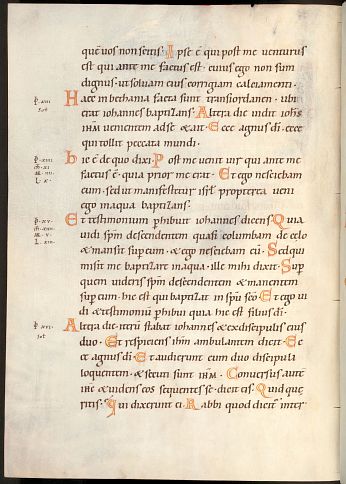 quem vos non scitis. Ipse ē qui post me venturus
est qui ante me factus est. cuius ego non sum
dignus ut solvam eius corrigiam calciamenti.
Haec in bethania facta sunt transiordanen. ubi
erat iohannes baptizans. Altera die vidit iohs̄
ihm̄ venientem ad se & ait. Ecce agnus di. ecce
qui tollit peccata mundi.
hic ē de quo dixi. Post me venit vir qui ante me
factus ē. quia prior me erat. Et ego nesciebam
eum. sed ut manifestetur isrl̄ propterea veni
ego in aqua baptizans.
Et testimonium phibuit iohannes dicens. Quia
vidi spm̄ descendentem quasi columbam de celo
& mansit sup eum. & ego nesciebam eū. Sed qui
misit me baptizare in aqua. ille mihi dixit. Sup
quem videris spm̄ descendentem & manentem
sup eum. hic est qui baptizat in spū scō. Et ego vi
di & testimoniū phibui quia hic est filius di.
Altera die iterū stabat iohannes & ex discipulis eius
duo. Et respiciens ihm̄ ambulantem dicit. Ec
ce agnus di. Et audierunt eum duo discipuli
loquentem. & secuti sunt ihm̄. Conversus autē
ihc & videns eos sequentes se. dicit eis. Quid que
ritis. Qui dixerunt ei. Rabbi quod dicitur inter